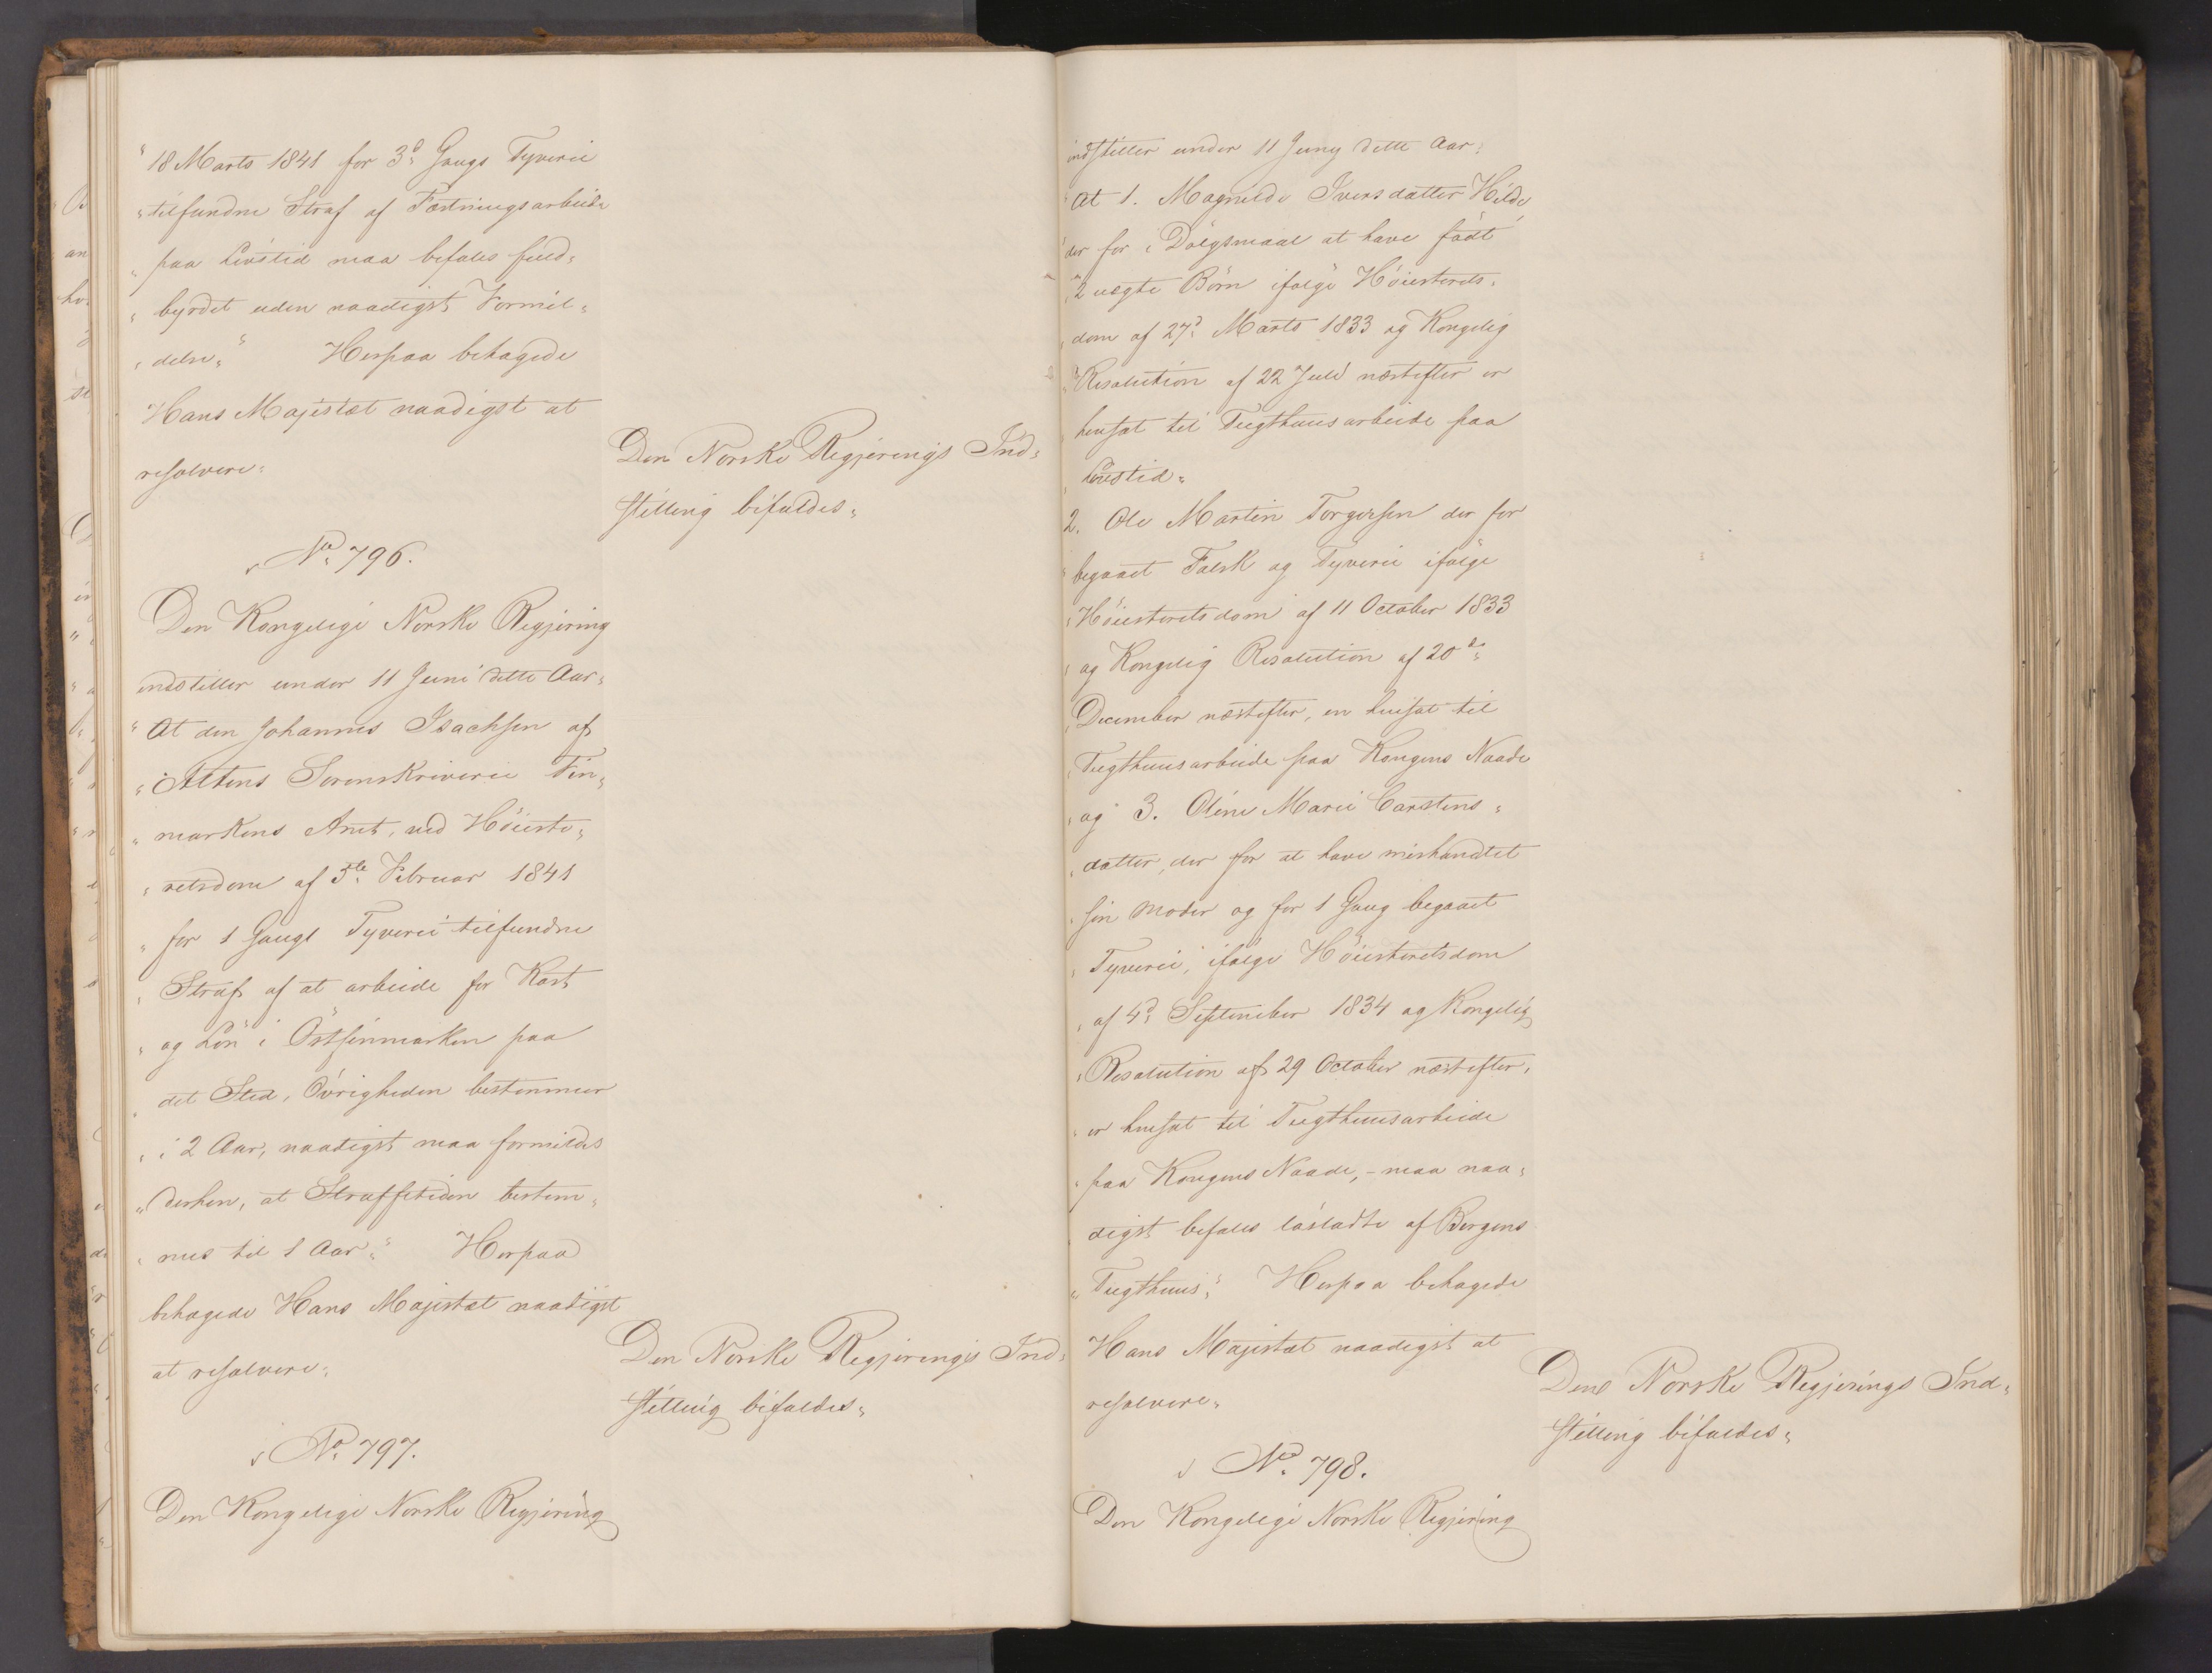 "18 Marts 1841 for 3d: Gangs Tyverie
"tilfundne Straf af Fæstningsarbeide
"paa Livstid maa befales fuld=
"byrdet uden naadigst Formil=
"delse." Herpaa behagede
Hans Majestæt naadigst at
resolvere:
Den Norske Regjerings Ind=
stilling bifaldes.
No: 796.
Den Kongelige Norske Regjering
indstiller under 11 Juni dette Aar:
"At den Johannes Isachsen af
"Altens Sorenskriverie Fin=
"markens Amt, ved Høieste=
"retsdom af 5te: Februar 1841
"for 1 Gangs Tyverie tilfundne
"Straf af at arbeide for Kost
"og Løn i Østfinmarken paa
"det Sted, Øvrigheden bestemmer
"i 2 Aar, naadigst maa formildes
"derhen, at Straffetiden bestem=
"mes til 1 Aar." Herpaa
behagede Hans Majestæt naadigst
at resolvere:
Den Norske Regjerings Ind=
stilling bifaldes.
No: 797.
Den Kongelige Norske Regjering
indstiller under 11 Juny dette Aar:
"At 1. Magnilde Iversdatter Hilde,
"der for i Dølgsmaal at have födt
"2 uægte Børn ifølge Høiesterets=
"dom af 27d: Marts 1833 og Kongelig
"Resolution af 22 Juli næstefter er
"hensat til Tugthuusarbeide paa
"Livstid.
2. Ole Martin Torgersen der for
"begaaet Falsk og Tyverie ifølge
"Høiesteretsdom af 11 October 1833
"og Kongelig Resolution af 20de:
"December næstefter, en hensat til
"Tugthuusarbeide paa Kongens Naade
"og 3. Oline Marie Carstens=
"datter, der for at have mishandlet
"sin Moder og for 1 Gang begaaet
"Tyverie, ifølge Høiesteretsdom
"af 4d: September 1834 og Kongelig
"Resolution af 29 October næstefter,
"er hensat til Tugthuusarbeide
"paa Kongens Naade, - maa naa=
"digst befales løsladte af Bergens
"Tugthuus." Herpaa behagede
Hans Majestæt naadigst at
resolvere:
Den Norske Regjerings Ind=
stilling bifaldes.
No: 798.
Den Kongelige Norske Regjering